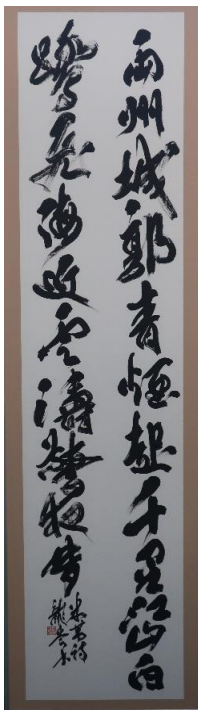 兩州城郭青煙起千里江山白
鷺飛海近雲濤驚夜夢
米芾詩